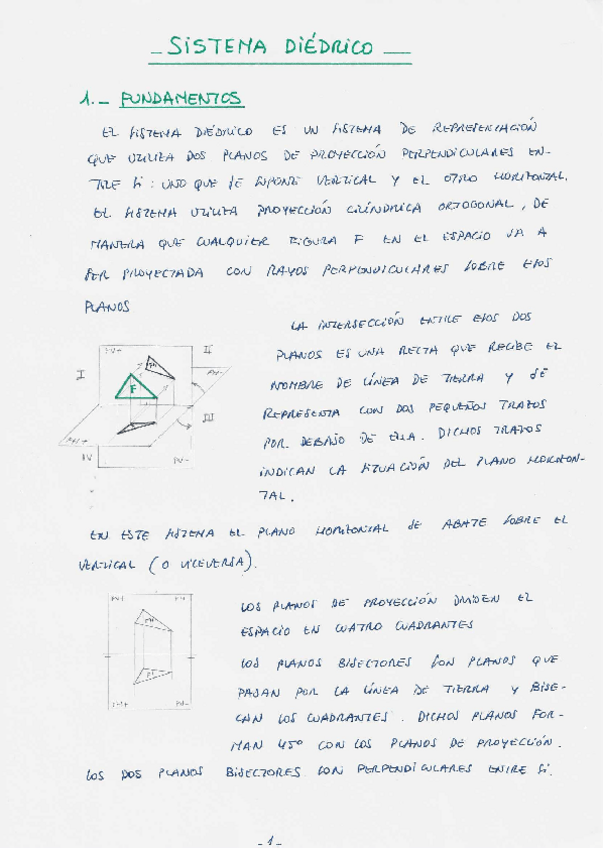 SISTEMA DIÉDRICO
1.- FUNDAMENTOS
EL SISTEMA DIÉDRICO ES UN SISTEMA DE REPRESENTACIÓN
QUE UTILIZA DOS PLANOS DE PROYECCIÓN PERPENDICULARES EN-
TRE SI : UNO QUE SE SUPONE VERTICAL Y EL OTRO HORIZONTAL.
EL SISTEMA UTILIZA PROYECCIÓN CILÍNDRICA ORTOGONAL, DE
MANERA QUE CUALQUIER FIGURA F EN EL ESPACIO VA A
SER PROYECTADA CON RAYOS PERPENDICULARES SOBRE ESOS
PLANOS
LA INTERSECCIÓN ENTRE ESOS DOS
PLANOS ES UNA RECTA QUE RECIBE EL
NOMBRE DE LÍNEA DE TIERRA Y SE
REPRESENTA CON DOS PEQUEÑOS TRAZOS
POR DEBAJO DE ELLA. DICHOS TRAZOS
INDICAN LA SITUACIÓN DEL PLANO HORIZON-
TAL.
PV+
II
I
PH-
F
III
PH+
IV
PV-
EN ESTE SISTEMA EL PLANO HORIZONTAL SE ABATE SOBRE EL
VERTICAL (O VICEVERSA).
LOS PLANOS DE PROYECCIÓN DIVIDEN EL
ESPACIO EN CUATRO CUADRANTES
LOS PLANOS BISECTORES SON PLANOS QUE
PASAN POR LA LÍNEA DE TIERRA Y BISE-
CAN LOS CUADRANTES. DICHOS PLANOS FOR-
MAN 45º CON LOS PLANOS DE PROYECCIÓN.
PV+
PH-
PH+
PV-
LOS DOS PLANOS BISECTORES SON PERPENDICULARES ENTRE SI.
-1-